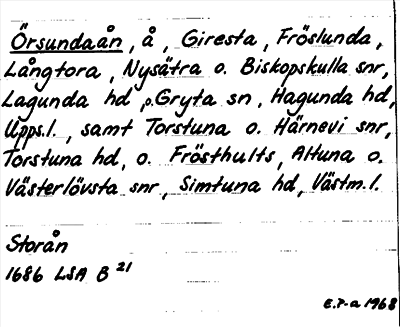 Örsundaån, å, Giresta, Fröslunda,
Långtora, Nysätra o. Biskopskulla snr,
Lagunda hd, o. Gryta sn, Hagunda hd,
Upps.l., samt Torstuna o. Härnevi snr,
Torstuna hd, o. Frösthults, Altuna o.
Västerlövsta snr, Simtuna hd, Västm.l.
Storån
1686 LSA B 21
E.P-a 1968